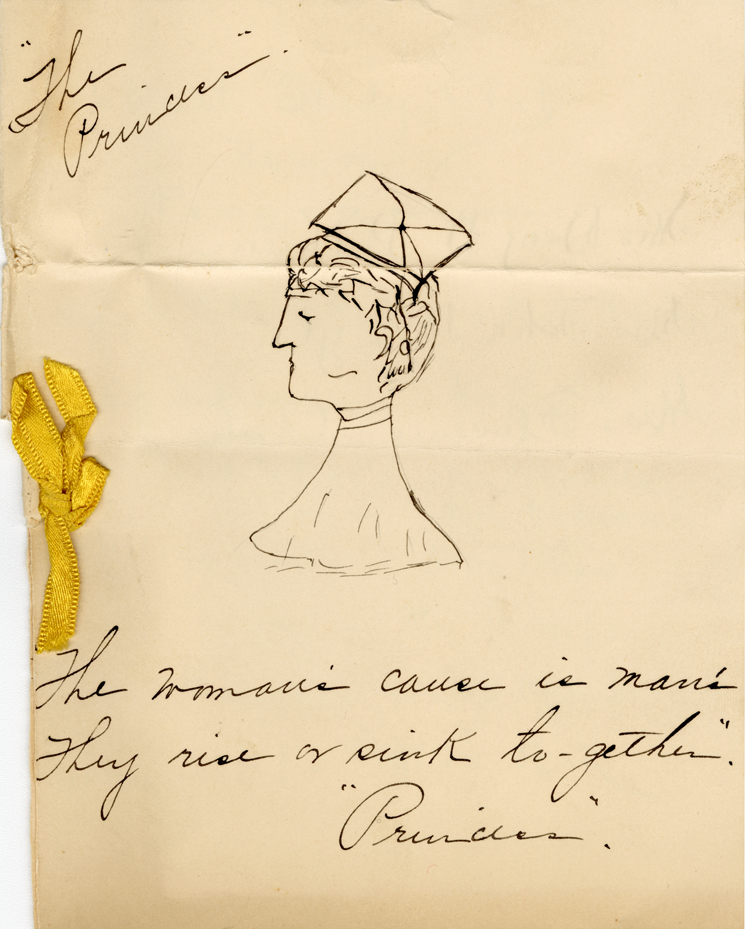 "The
Princess".
The woman's cause is man's
They rise or sink to-gether".
"Princess".